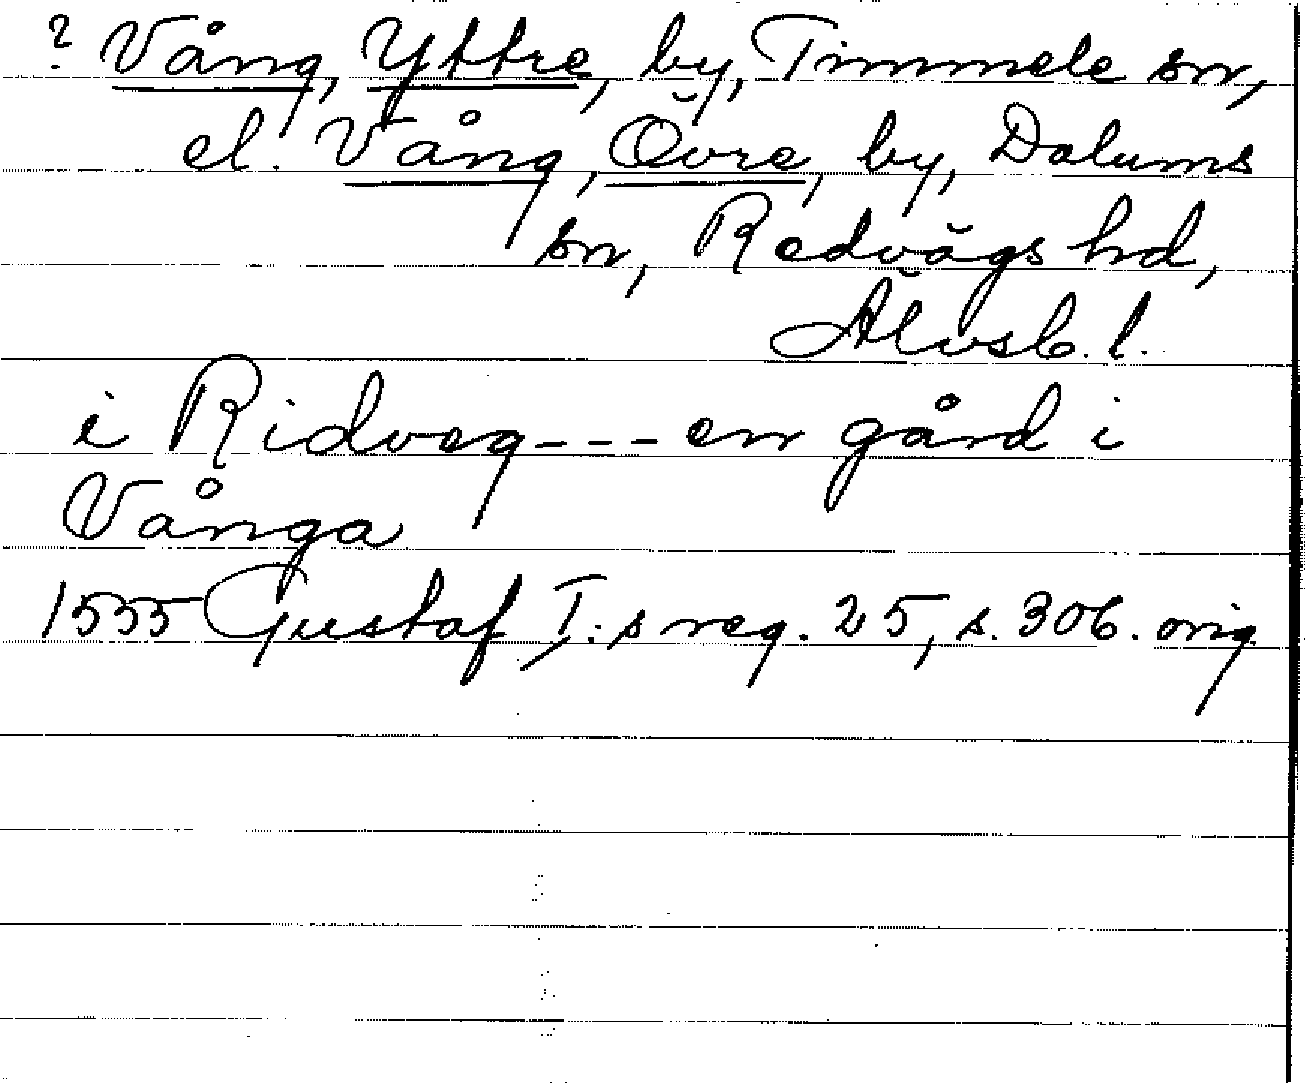 ? Vång, Yttre, by, Timmele sn,
el. Vång, Övre, by, Dalums
sn, Redvägs hd,
Älvsb. l.
i Ridveg --- en gård i
Vånga
1555 Gustaf I:s reg. 25, s. 306. orig